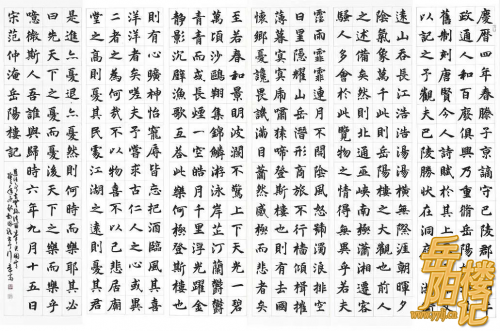 慶曆四年春滕子京謫守巴陵郡
政通人和百廢俱興乃重脩岳陽
舊制刻唐賢今人詩賦於其上
以記之予觀夫巴陵勝狀在洞庭
遠山吞長江浩浩湯湯橫無際涯朝暉夕
陰氣象萬千此則岳陽樓之大觀也前人
之述備矣然則北通巫峽南極瀟湘遷客
騷人多會於此覽物之情得無異乎若夫
霪雨霏霏連月不開陰風怒號濁浪排空
日星隱耀山岳潛形商旅不行檣傾楫摧
薄暮冥冥虎嘯猿啼登斯樓也則有去國
懷鄉憂讒畏譏滿目蕭然感極而悲者矣
至若春和景明波瀾不驚上下天光一碧
萬頃沙鷗翔集錦鱗游泳岸芷汀蘭郁郁
青青而或長煙一空皓月千里浮光躍金
靜影沉璧漁歌互答此樂何極登斯樓也
則有心曠神怡寵辱皆忘把酒臨風其喜
洋洋者矣嗟夫予嘗求古仁人之心或異
二者之為何哉不以物喜不以己悲居廟
堂之高則憂其民處江湖之遠則憂其君
是進亦憂退亦憂然則何時而樂耶其必
曰先天下之憂而憂後天下之樂而樂乎
噫微斯人吾誰與歸時六年九月十五日
宋范仲淹岳陽樓記
岳阳楼记